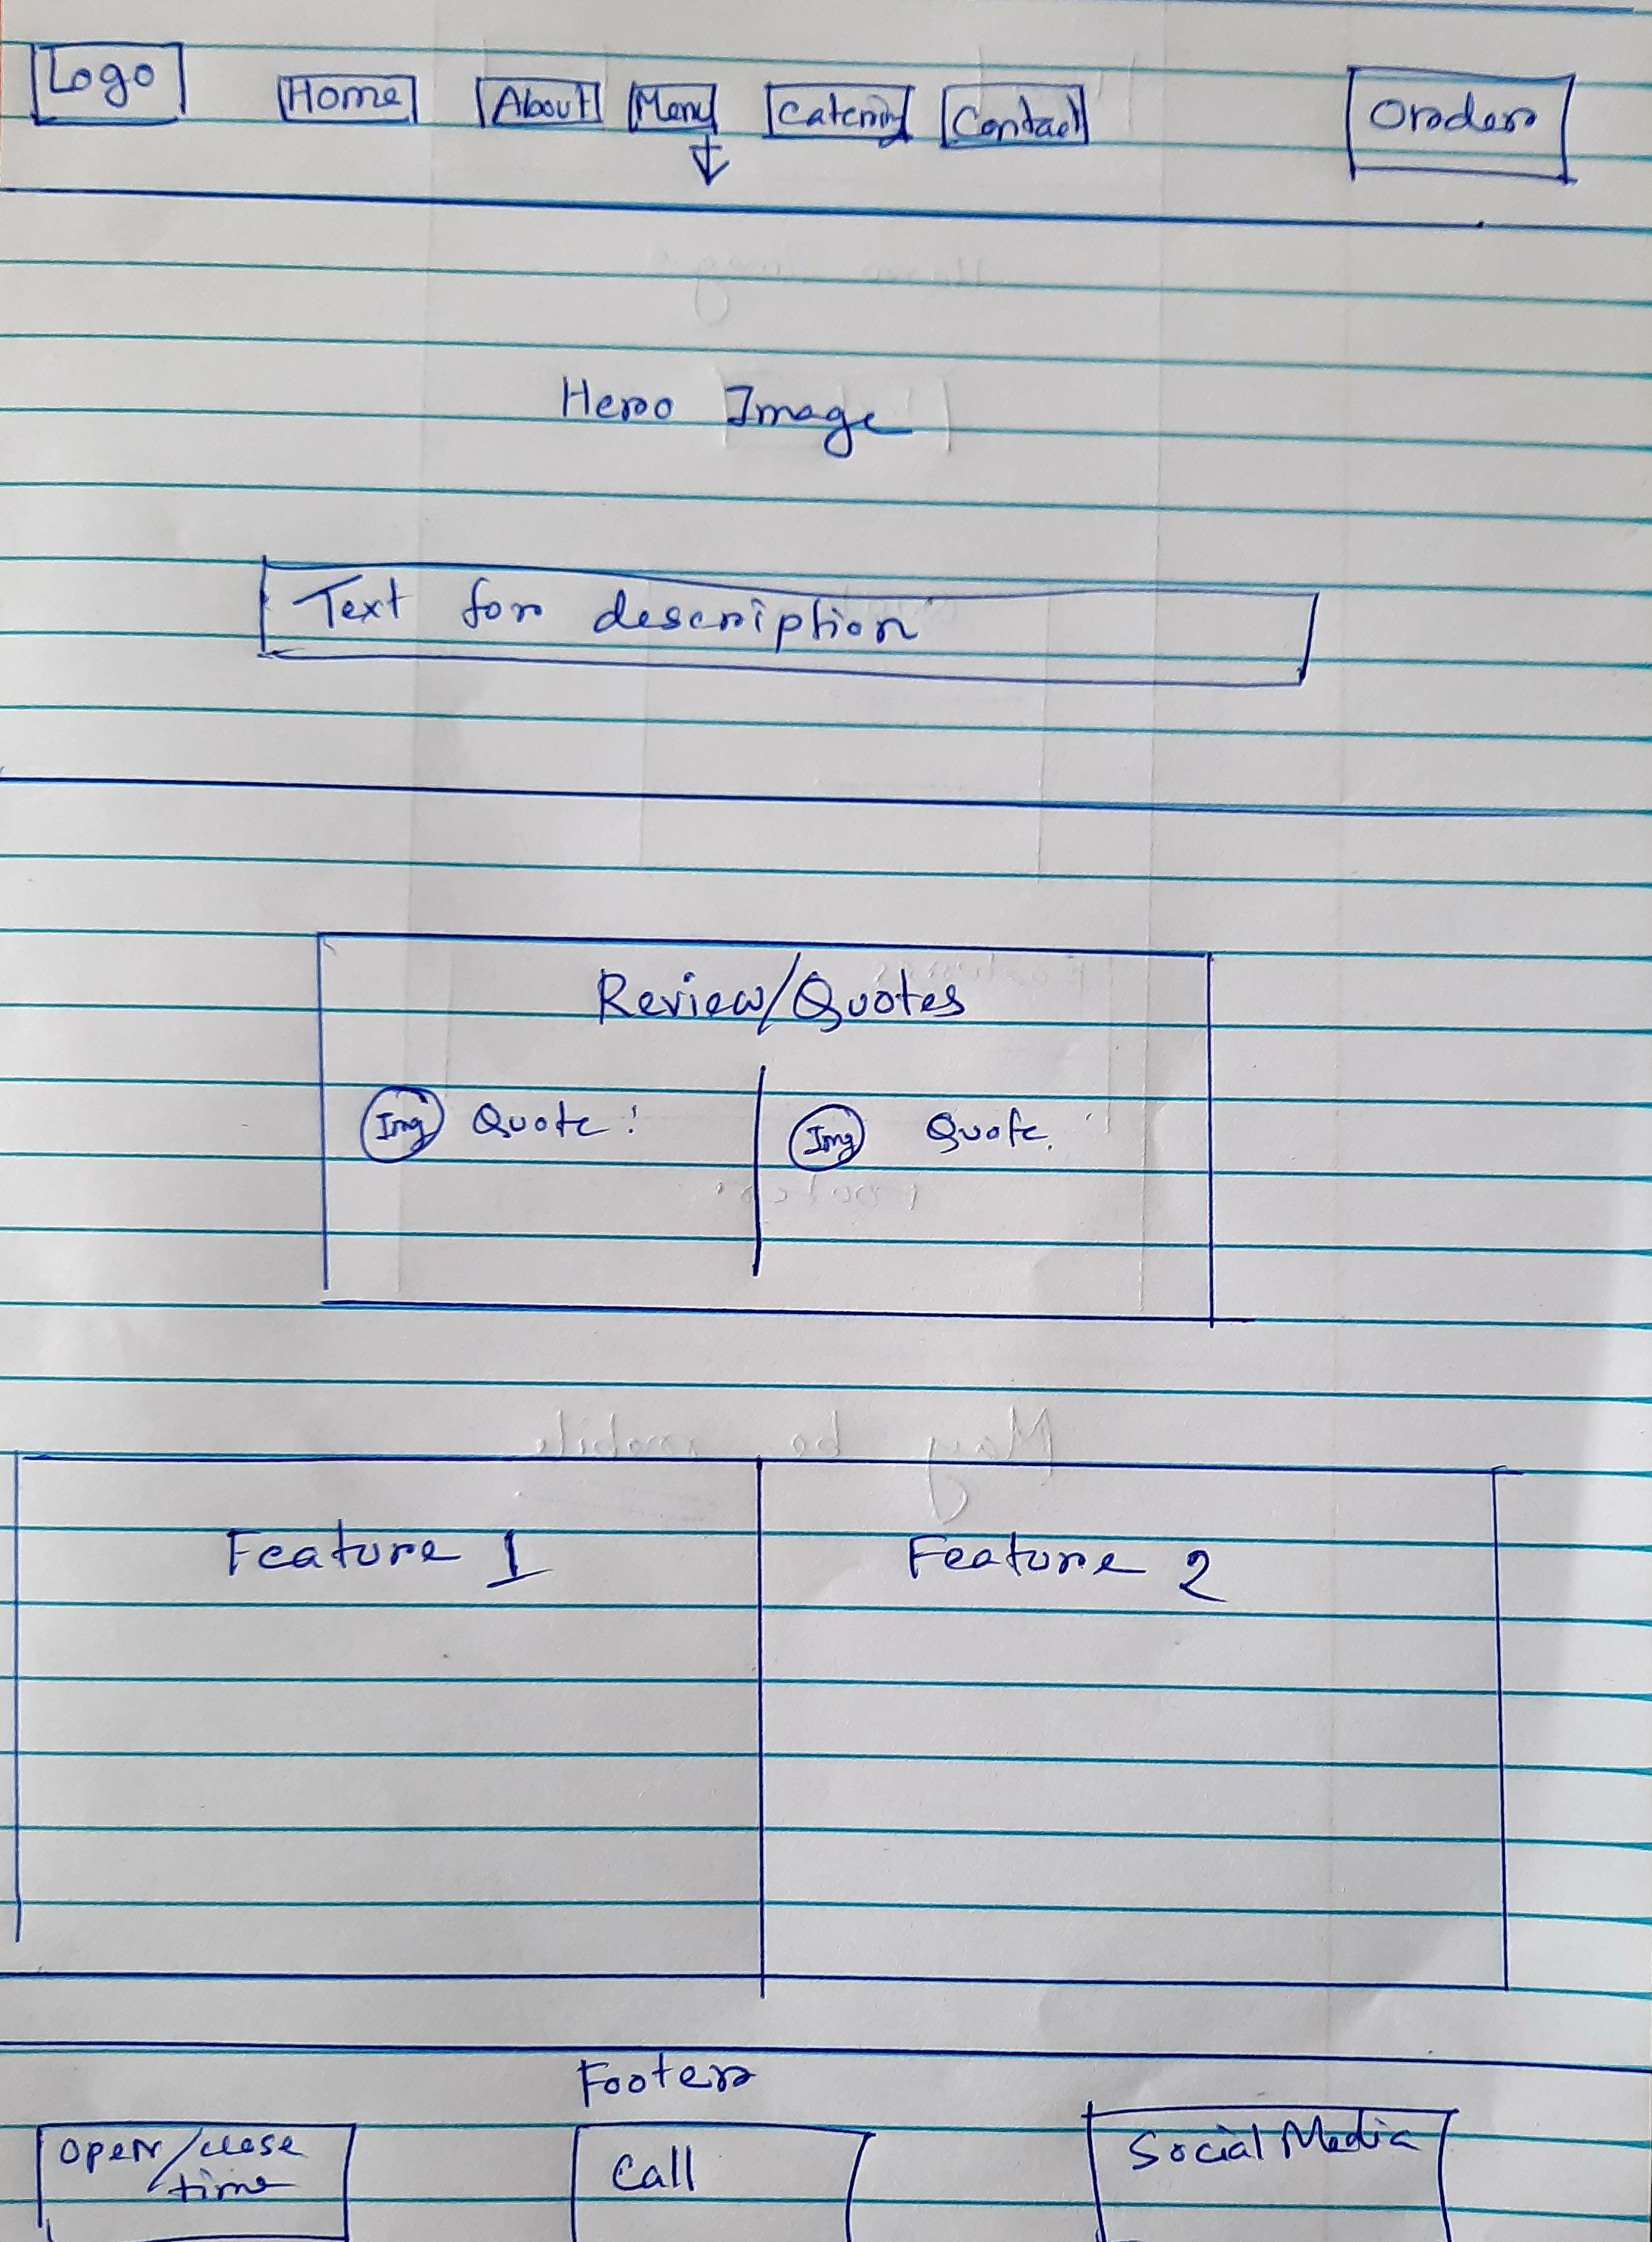 Logo Home About Menu Catering Contact Order
Hero Image
Text for description
Review/Quotes
Img Quote: Img Quote.
Feature 1 Feature 2
Footer
Open/close Call Social Media
time